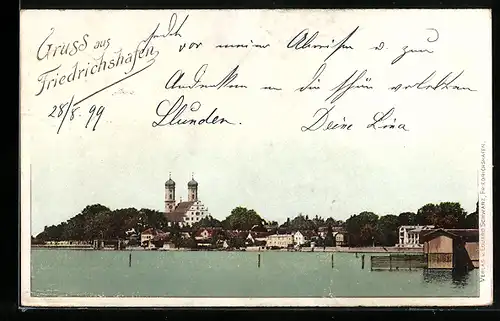 Gruss aus
Friedrichshafen
vor meiner Abreise u. zum
28/8. 99
Andenken an die schönen verlebten
Stunden.
Deine Lina
VERLAG LEONHARD SCHWARZ, FRIEDRICHSHAFEN.